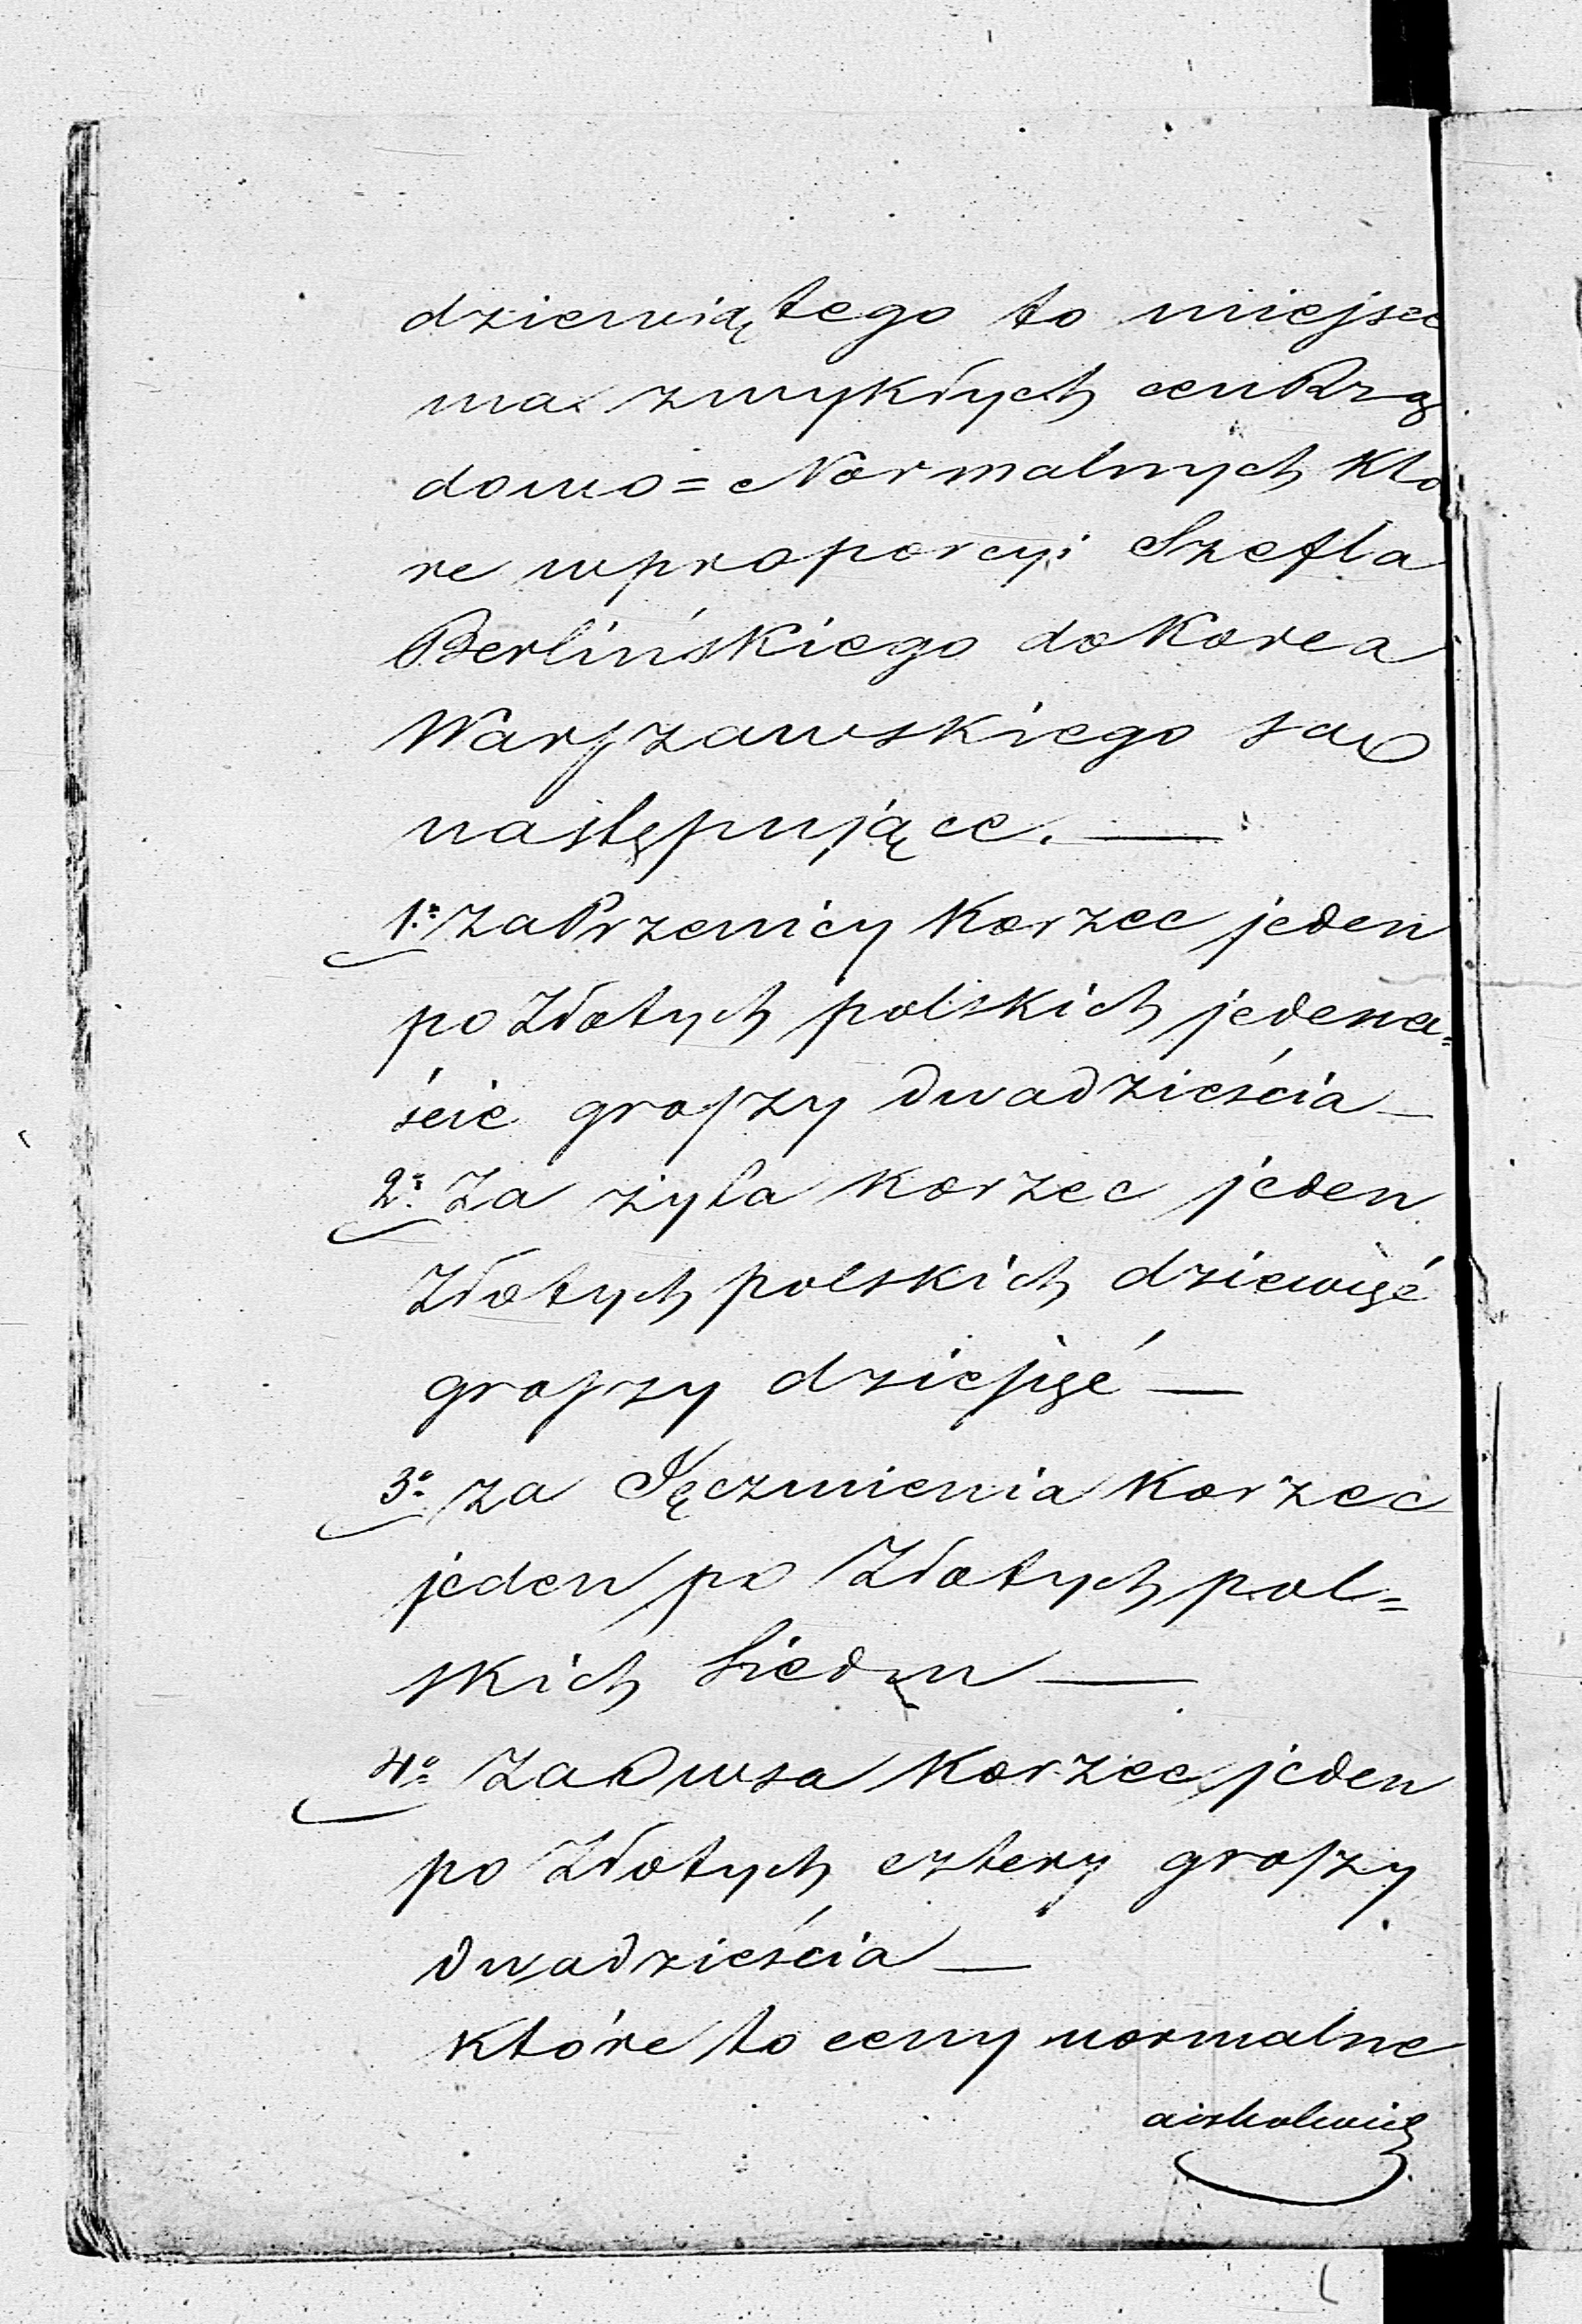 dziewiątego to miejsce
ma zwykłych cen Rzą
dowo=Normalnych Kto
re w proporcyi Szefla
Berlińskiego do Korca
Warszawskiego są
następujące. —
1º za Przenicy Korzec jeden
po Złotych polskich jedena=
ście groszy dwadzieścia —
2º Za żyta korzec jeden
Złotych polskich dziewięć
groszy dziesięć —
3º za Jęczmienia Korzec
jeden po Złotych pol=
skich Siedm —
4º za Owsa Korzec jeden
po Złotych cztery groszy
dwadzieścia —
które to ceny normalne